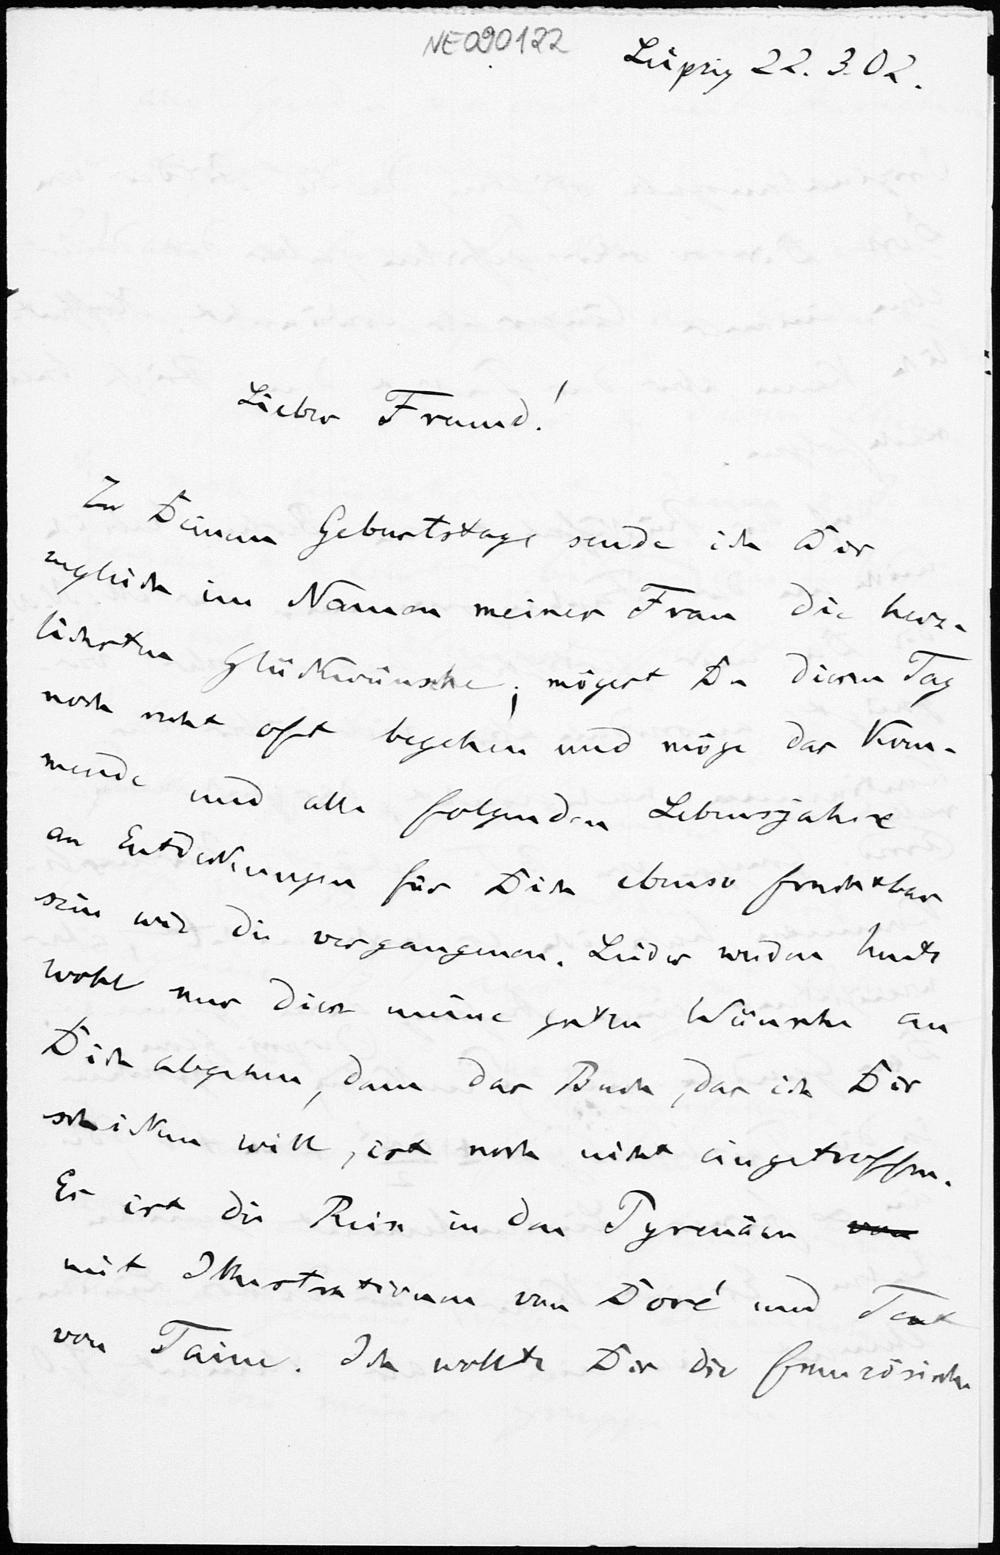 NE090122
Leipzig 22. 3. 02.
Lieber Freund!
Zu Deinem Geburtstage sende ich Dir
zugleich im Namen meiner Frau die herz-
lichsten Glückwünsche; mögest Du diesen Tag
noch recht oft begehen und möge das kom-
mende und alle folgenden Lebensjahre
an Entdeckungen für Dich ebenso fruchtbar
sein wie die vergangenen. Leider werden heute
wohl nur diese meine guten Wünsche an
Dich abgehen, denn das Buch, das ich Dir
schicken will, ist noch nicht eingetroffen.
Es ist die Reise in den Pyrenäen von
mit Illustrationen von Doré und Text
von Taine. Ich wollte Dir die französische